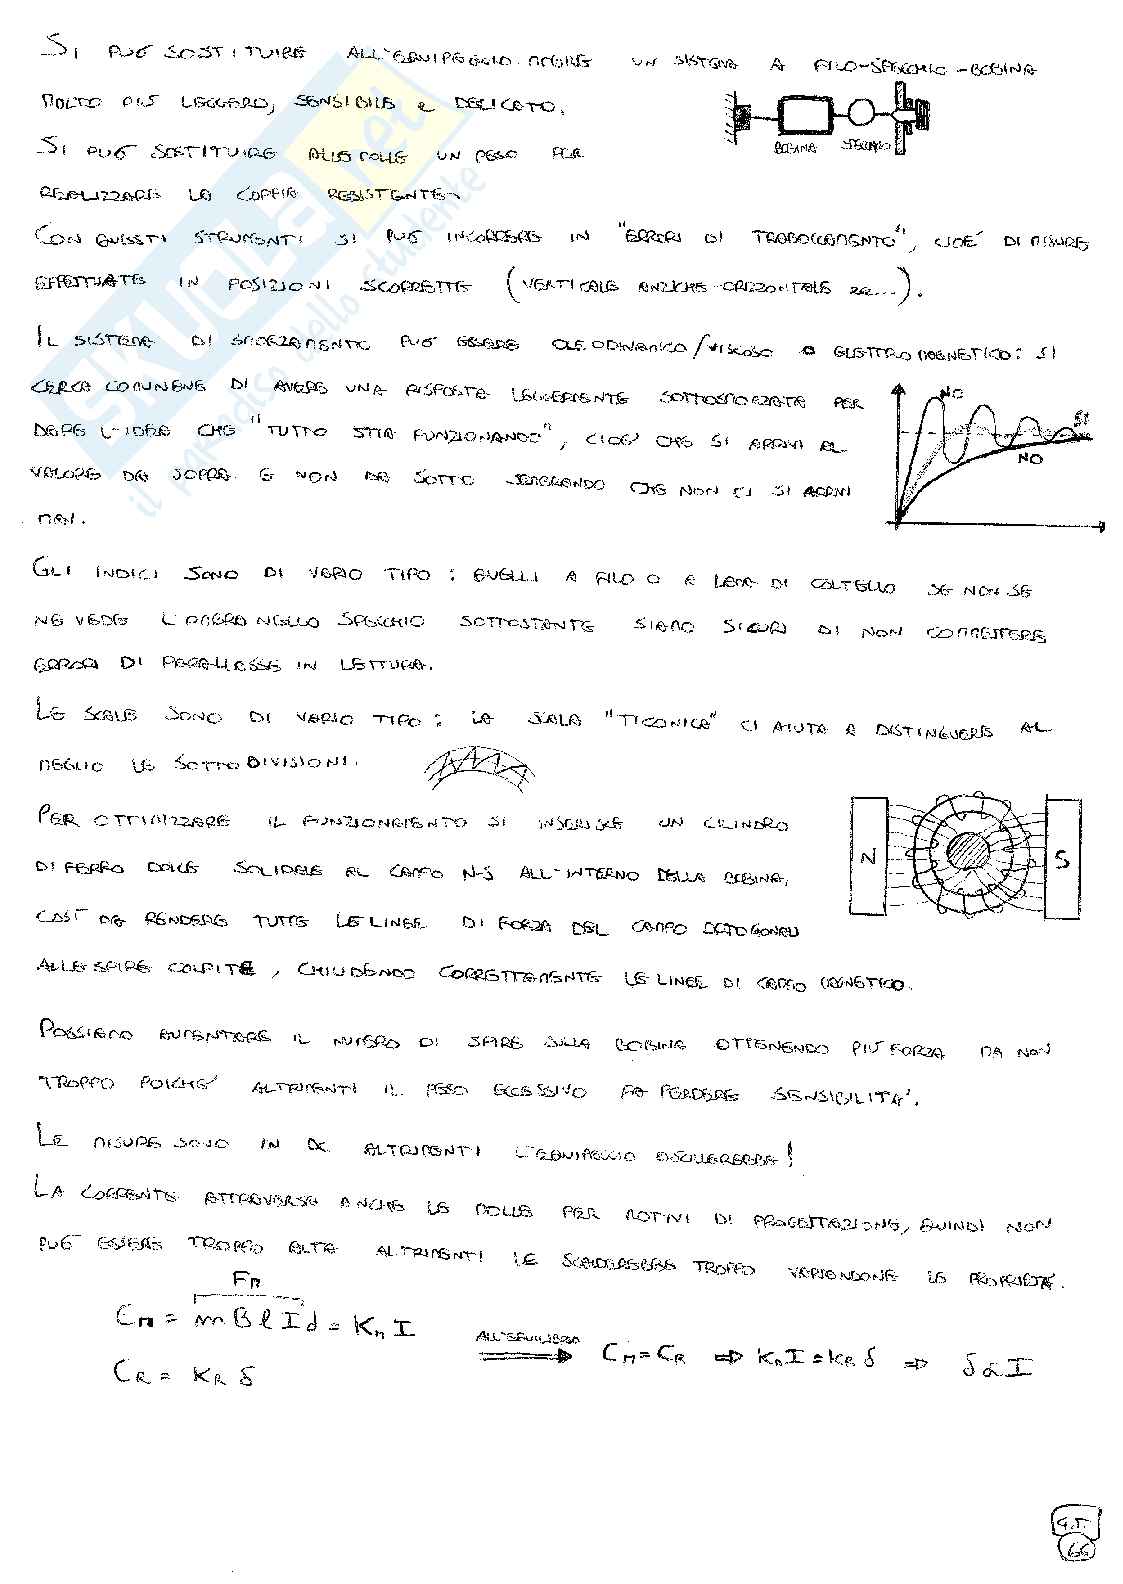 SI PUÒ SOSTITUIRE ALL'EQUIPAGGIO MOBILE UN SISTEMA A FILO-SPECCHIO-BOBINA
MOLTO PIÙ LEGGERO, SENSIBILE E DELICATO.
BOBINA SPECCHIO
SI PUÒ SOSTITUIRE ALLE MOLLE UN PESO PER
REALIZZARE LA COPPIA RESISTENTE.
CON QUESTI STRUMENTI SI PUÒ INCORRERE IN "ERRORI DI TRABOCCAMENTO", CIOÈ DI MISURE
EFFETTUATE IN POSIZIONI SCORRETTE (VERTICALE ANZICHÈ ORIZZONTALE ...).
IL SISTEMA DI SMORZAMENTO PUÒ ESSERE OLEODINAMICO/VISCOSO O ELETTROMAGNETICO: SI
CERCA COMUNQUE DI AVERE UNA RISPOSTA LEGGERMENTE SOTTOSMORZATA PER
DARE L'IDEA CHE "TUTTO STIA FUNZIONANDO", CIOÈ CHE SI ARRIVI AL
VALORE DA SOPRA E NON DA SOTTO SEMBRANDO CHE NON CI SI ARRIVI
MAI.
NO
SI
NO
GLI INDICI SONO DI VARIO TIPO: QUELLI A FILO O A LAMA DI COLTELLO SE NON SE
NE VEDE L'OMBRA NELLO SPECCHIO SOTTOSTANTE SIAMO SICURI DI NON COMMETTERE
ERRORI DI PARALLASSE IN LETTURA.
LE SCALE SONO DI VARIO TIPO: LA SCALA "TICONICA" CI AIUTA A DISTINGUERE AL
MEGLIO LE SOTTODIVISIONI.
PER OTTIMIZZARE IL FUNZIONAMENTO SI INSERISCE UN CILINDRO
DI FERRO DOLCE SOLIDALE AL CAMPO N-S ALL'INTERNO DELLA BOBINA,
COSÌ DA RENDERE TUTTE LE LINEE DI FORZA DEL CAMPO ORTOGONALI
ALLE SPIRE COLPITE, CHIUDENDO CORRETTAMENTE LE LINEE DI CAMPO MAGNETICO.
N S
POSSIAMO AUMENTARE IL NUMERO DI SPIRE SULLA BOBINA OTTENENDO PIÙ FORZA MA NON
TROPPO POICHÈ ALTRIMENTI IL PESO ECCESSIVO FA PERDERE SENSIBILITÀ.
LE MISURE SONO IN DC ALTRIMENTI L'EQUIPAGGIO OSCILLEREBBE!
LA CORRENTE ATTRAVERSA ANCHE LE MOLLE PER MOTIVI DI PROGETTAZIONE, QUINDI NON
PUÒ ESSERE TROPPO ALTA ALTRIMENTI LE SCALDEREBBE TROPPO VARIANDONE LE PROPRIETÀ.
FM
CM = mBlId = KM I
CR = KR δ
ALL'EQUILIBRIO ⟹ CM = CR ⇒ KM I = KR δ ⇒ δ α I
G.T.
66
SKUOLA.net
il paradiso dello studente